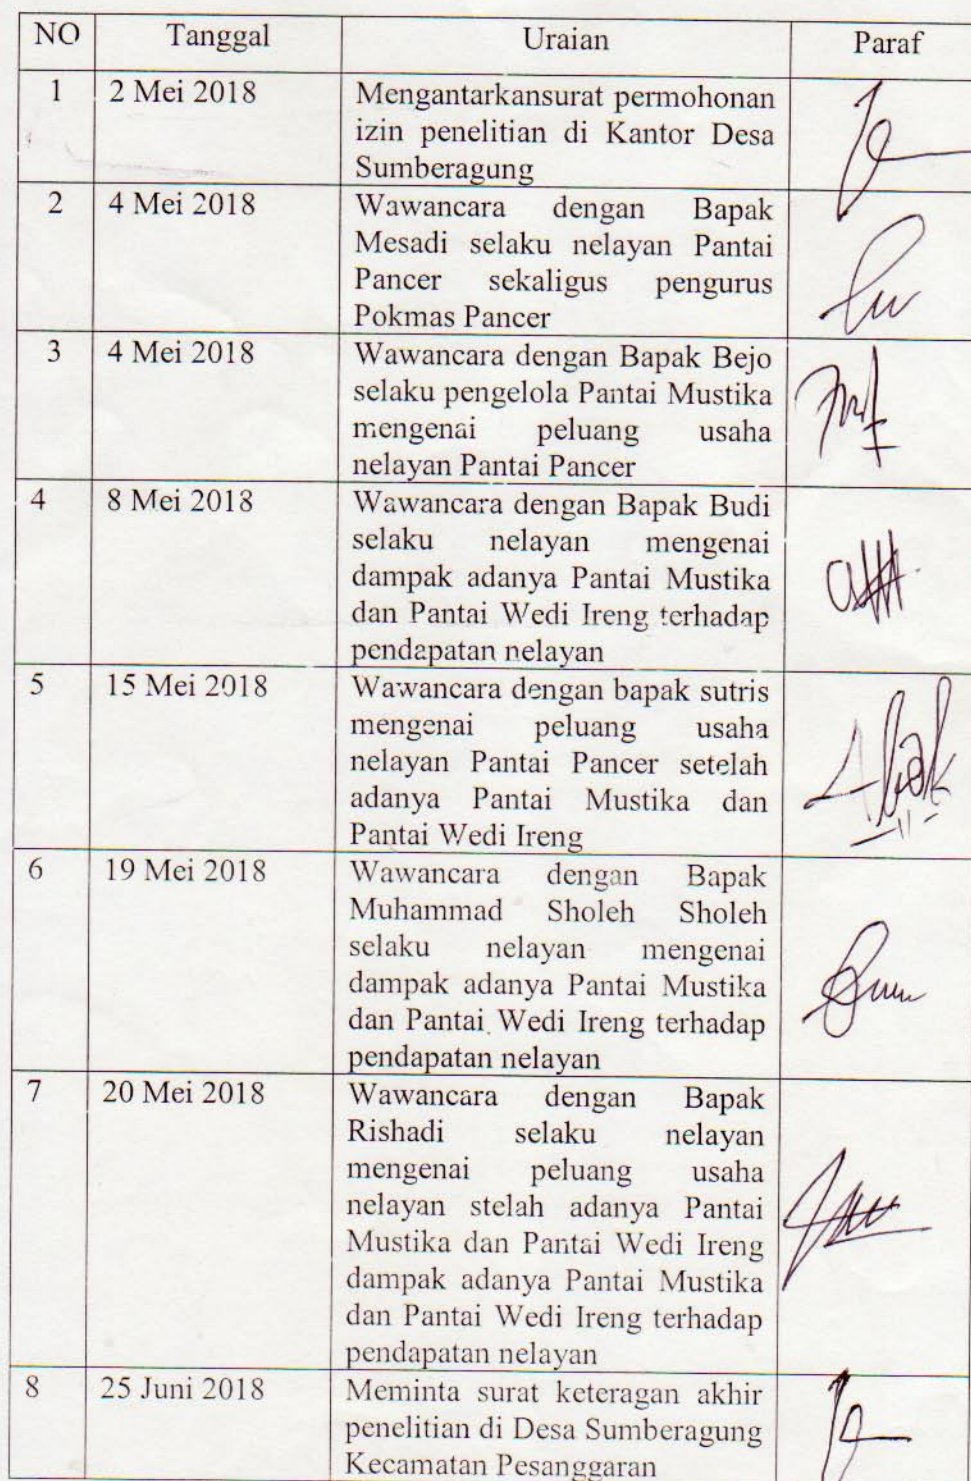 NO Tanggal Uraian Paraf
1 2 Mei 2018 Mengantarkansurat permohonan
izin penelitian di Kantor Desa
Sumberagung
2 4 Mei 2018 Wawancara dengan Bapak
Mesadi selaku nelayan Pantai
Pancer sekaligus pengurus
Pokmas Pancer
3 4 Mei 2018 Wawancara dengan Bapak Bejo
selaku pengelola Pantai Mustika
mengenai peluang usaha
nelayan Pantai Pancer
4 8 Mei 2018 Wawancara dengan Bapak Budi
selaku nelayan mengenai
dampak adanya Pantai Mustika
dan Pantai Wedi Ireng terhadap
pendapatan nelayan
5 15 Mei 2018 Wawancara dengan bapak sutris
mengenai peluang usaha
nelayan Pantai Pancer setelah
adanya Pantai Mustika dan
Pantai Wedi Ireng
6 19 Mei 2018 Wawancara dengan Bapak
Muhammad Sholeh Sholeh
selaku nelayan mengenai
dampak adanya Pantai Mustika
dan Pantai Wedi Ireng terhadap
pendapatan nelayan
7 20 Mei 2018 Wawancara dengan Bapak
Rishadi selaku nelayan
mengenai peluang usaha
nelayan stelah adanya Pantai
Mustika dan Pantai Wedi Ireng
dampak adanya Pantai Mustika
dan Pantai Wedi Ireng terhadap
pendapatan nelayan
8 25 Juni 2018 Meminta surat keteragan akhir
penelitian di Desa Sumberagung
Kecamatan Pesanggaran